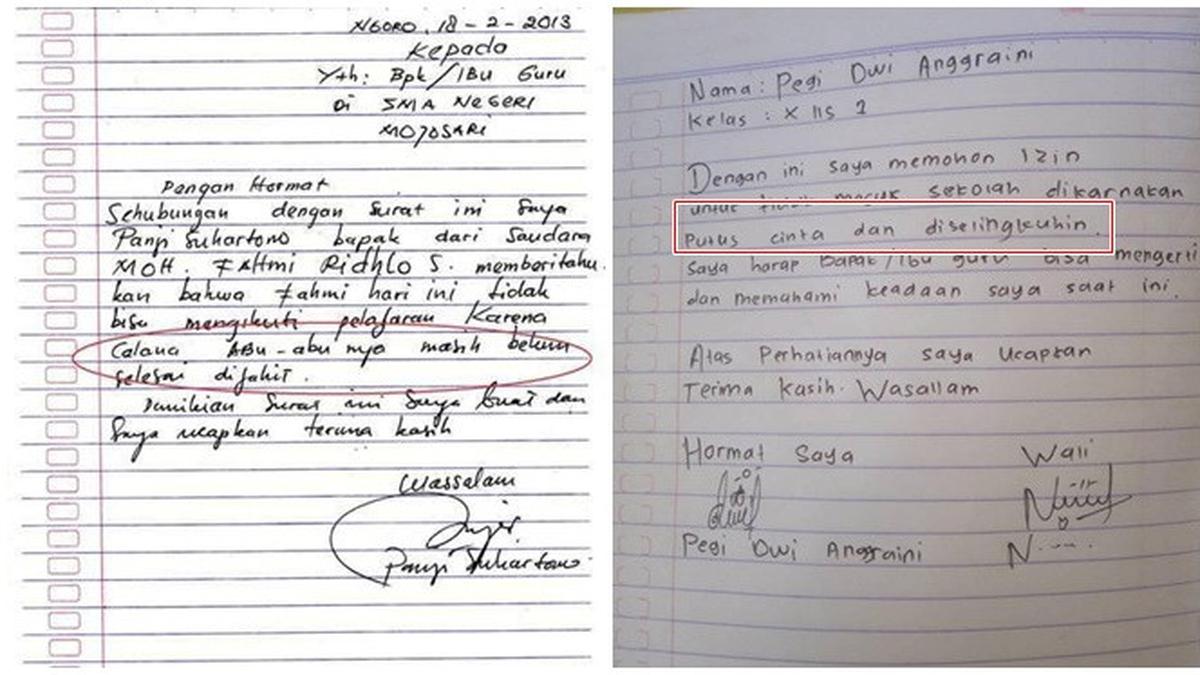 NGORO, 18-2-2013
Kepada
Yth: Bpk/IBu Guru
Di SMA NEGERI
MOJOSARI
Dangan Hormat
Sehubungan dengan surat ini Saya
Panji Suhartono bapak dari Saudara
MOH. FAHmi Ridhlo S. memboritahu.
kan bahwa Fahmi hari ini tidak
bisa mengikuti pelajaran Karena
Calana ABu-abu nya masih belum
selesai dijahit.
Demikian surat ini saya buat dan
Saya ucapkan terima kasih
Wassalam
Panji Suhartono
Nama: Pegi Dwi Anggraini
Kelas : X IIS 1
Dengan ini saya memohon Izin
untuk tidak masuk sekolah dikarnakan
Putus cinta dan diselingkuhin.
Saya harap Bapak/Ibu guru bisa mengerti
dan memahami keadaan saya saat ini.
Atas Perhatiannya saya Ucapkan
Terima kasih. Wasallam
Hormat Saya Wali
Pegi Dwi Anggraini N.....